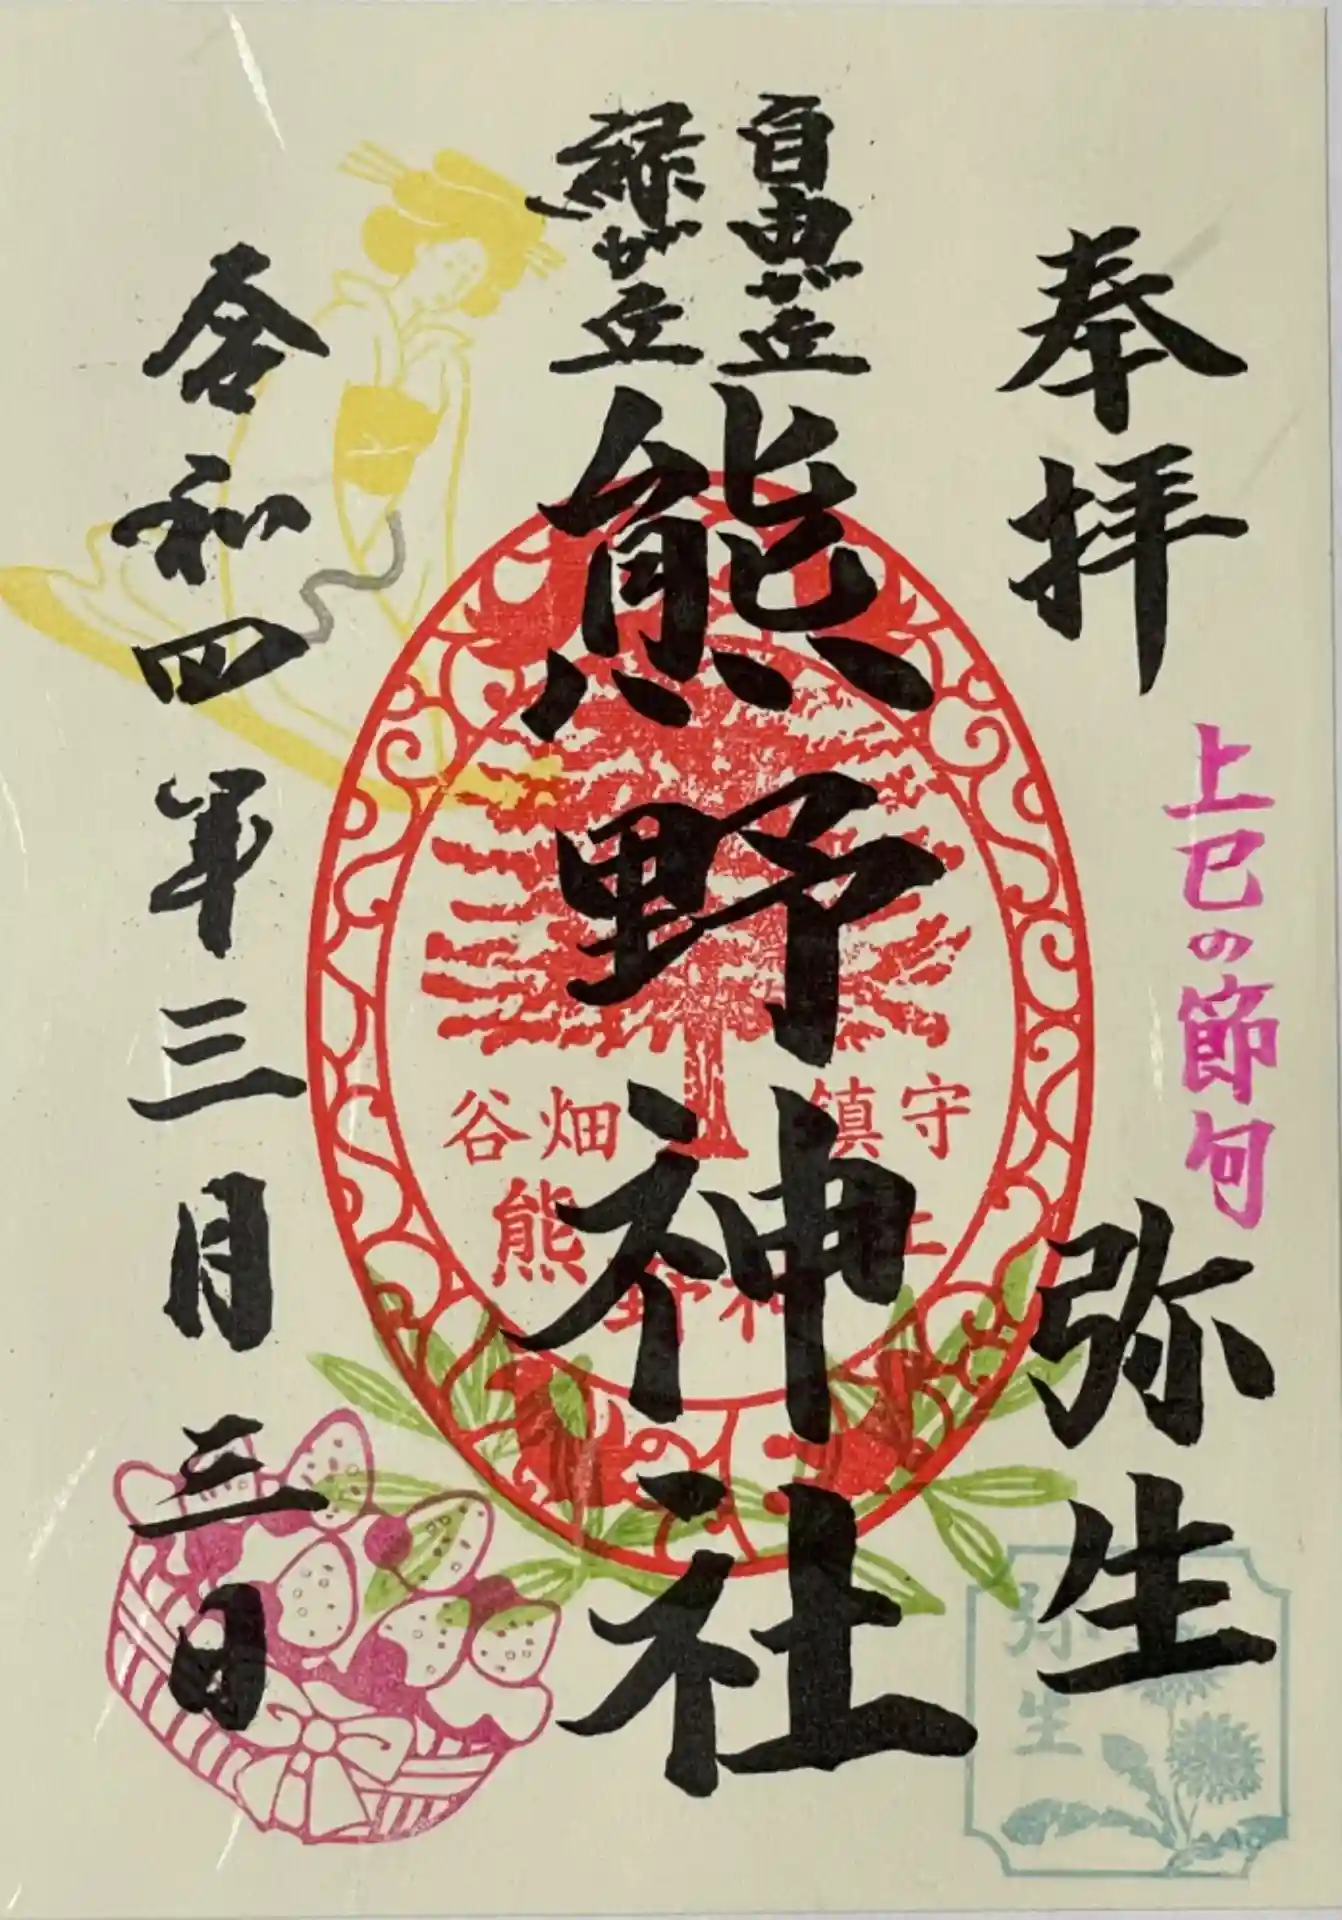 奉拝
上巳の節句
弥生
自由が丘
緑が丘
熊野神社
令和四年三月三日
鎮守
谷畑
熊野神
弥生